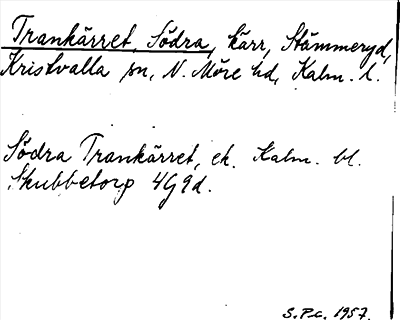 Trankärret, Södra, kärr, Stämmeryd,
Kristvalla sn, N. Möre hd, Kalm. l.
Södra Trankärret, ek. Kalm. bl.
Skubbetorp 4G9d.
S.P.c. 1957.